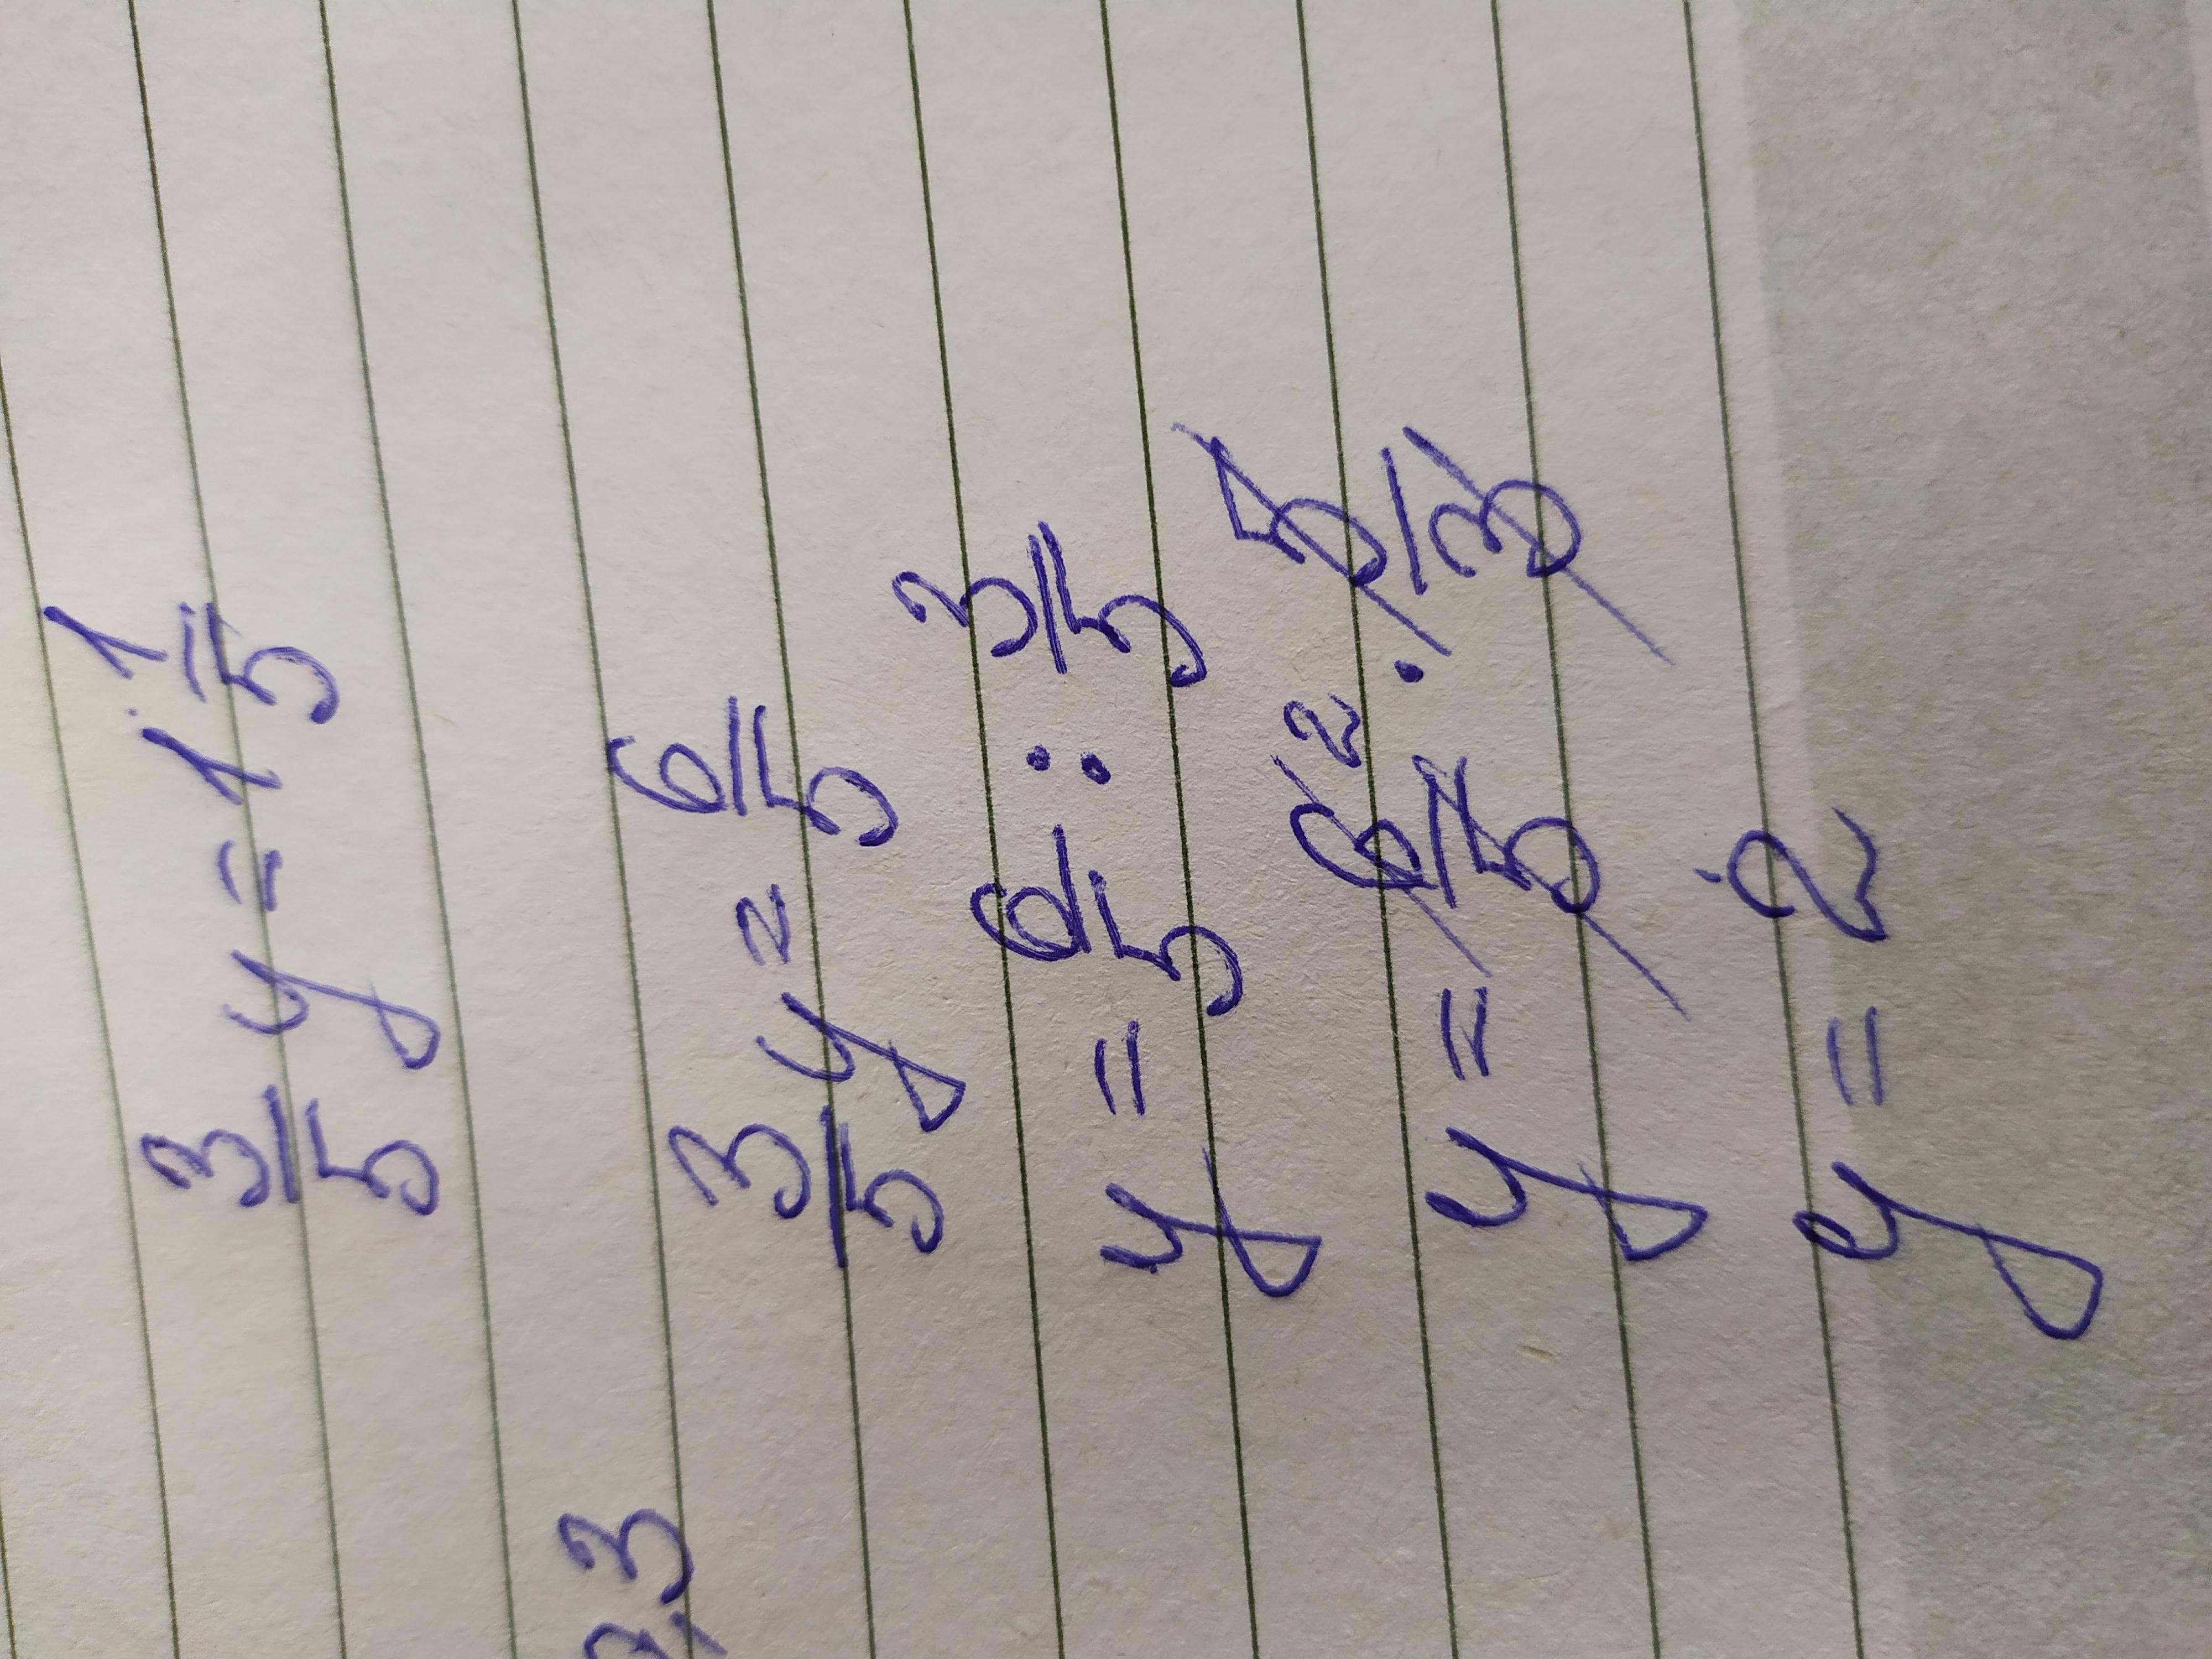 3/5 y = 1 1/5
3/5 y = 6/5
y = 6/5 : 3/5
y = 6/5 2 · 5/3
y = 2
3